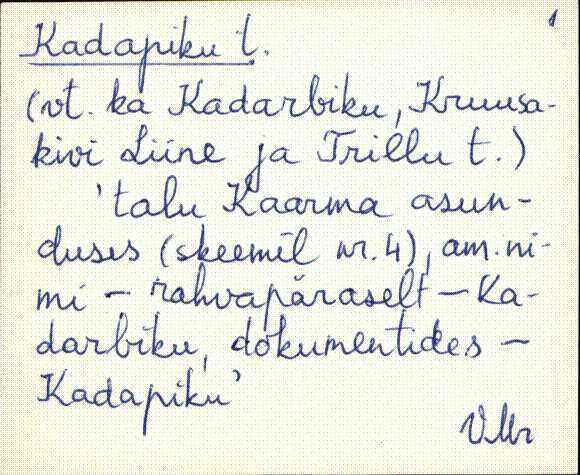 1
Kadapiku t.
(vt. ka Kadarbiku, Kruusa-
kivi Liine ja Trillu t.)
'talu Kaarma asun-
duses (skeemil nr. 4), am. ni-
mi – rahvapäraselt – Ka-
darbiku, dokumentides –
Kadapiku'
VMr